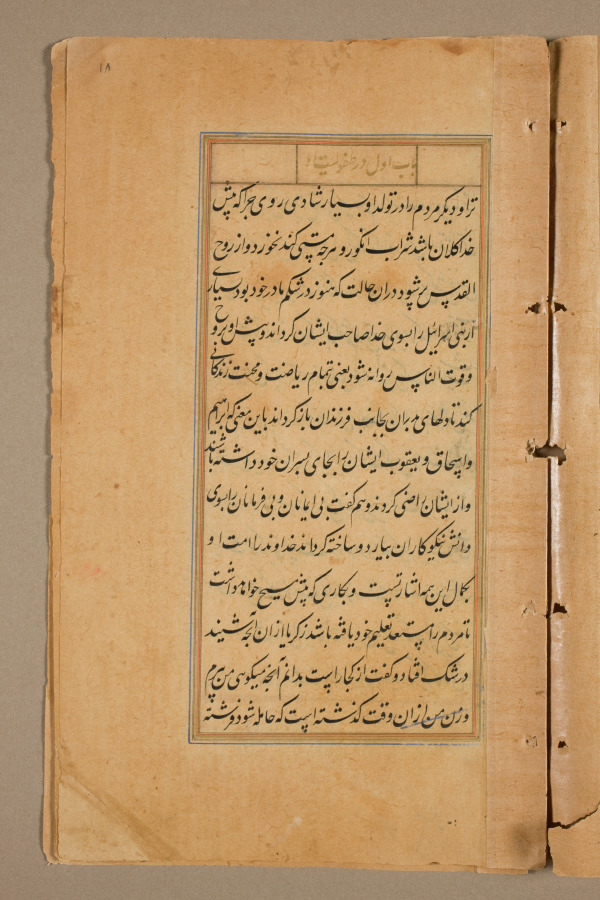 ۱۸
باب اول در طفولیت او
ترا و دیگر مردم را در تولد او بسیار شادی روی چرا که پیش
خدا کلان باشد شراب انگور و هرچه مستی کند نخورد و از روح
القدس پر شود دران حالت که هنوز در شکم مادر خود بود بسیاری
از بنی اسرائیل را بسوی خدا صاحب ایشان گرداند و پیش او بروح
و قوت الیاس روانه شود یعنی تمام ریاضت و محنت زندگانی
کند تا دلهای پدران بجانب فرزندان باز گرداند باین معنی که ابراهیم
و اسحاق و یعقوب ایشان را بجای پسران خود داشته باشند
و از ایشان راضی گردند و هم گفت بی ایمانان و بی فرمانان را بسوی
دانش نیکوکاران بیارد و ساخته گرداند خداوند را امت او
بکمال این همه اشارتست و بکاری که پیش مسیح خواهد داشت
تا مردم را مستعد تعلیم خود یافته باشد زکریا ازان آنچه شنید
در شک افتاد و گفت از کجا راست بدانم آنچه میگوئی من پیرم
و زن من ازان وقت گذشته است که حامله شود فرشته